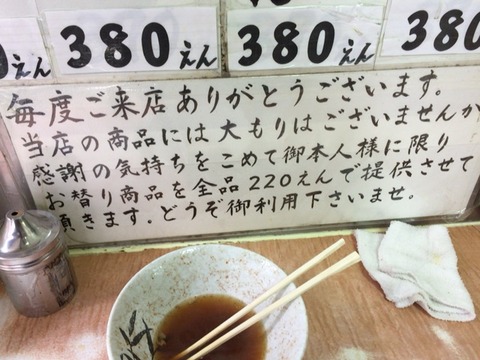 380えん
380えん
380
えん
毎度ご来店ありがとうございます。
当店の商品には大もりはございませんが
感謝の気持ちをこめて御本人様に限り
お替り商品を全品220えんで提供させて
頂きます.どうぞ御利用下さいませ。